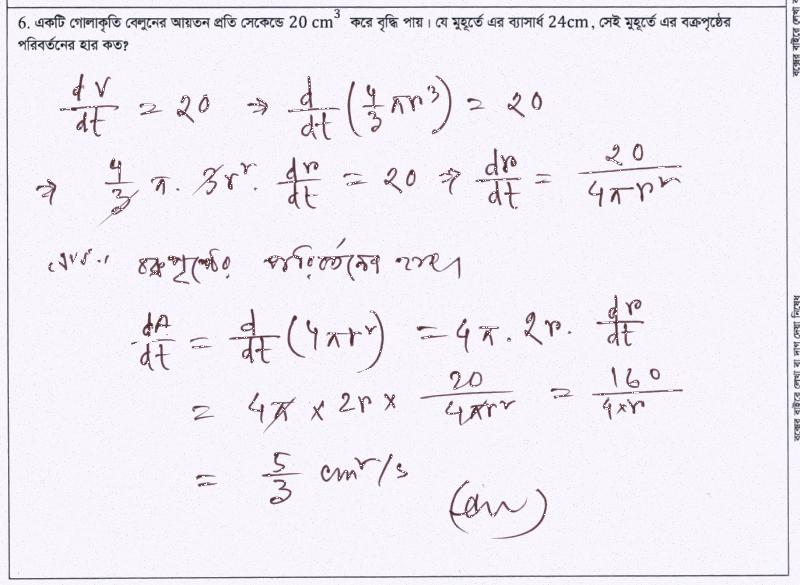 6. একটি গোলাকৃতি বেলুনের আয়তন প্রতি সেকেন্ডে 20 cm³ করে বৃদ্ধি পায়। যে মুহূর্তে এর ব্যাসার্ধ 24cm, সেই মুহূর্তে এর বক্রপৃষ্ঠের
পরিবর্তনের হার কত?
dV/dt = 20 ⇒ d/dt (4/3 πr³) = 20
⇒ 4/3 π. 3r². dr/dt = 20 ⇒ dr/dt = 20/4πr²
বক্রপৃষ্ঠের পরিবর্তনের
dA/dt = d/dt (4πr²) = 4π. 2r. dr/dt
= 4π × 2r × 20/4πr² = 160/4×r
= 5/3 cm²/s
(Ans)